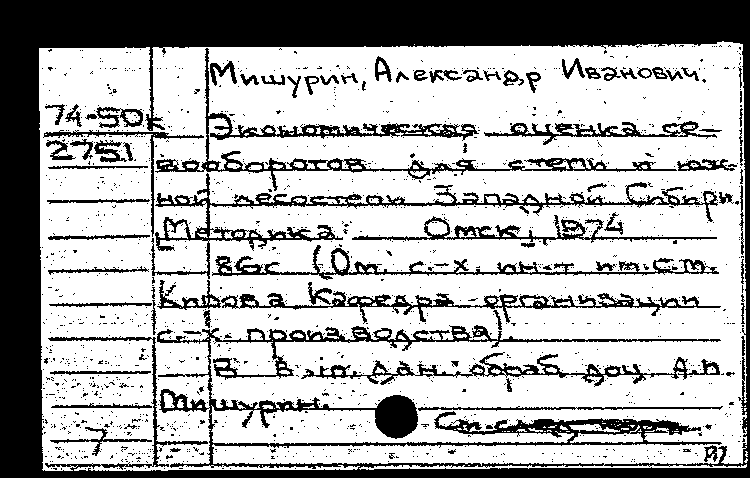 Мишурин, Александр Иванович.
74-50к
2751
Экономическая оценка се-
вооборотов для степи и юж-
ной лесостепи Западной Сибири.
[Методика. Омск, 1974
86с (Ом. с.-х. ин-т им. С.М.
Кирова Кафедра организации
с.-х. производства).
В в.ып. дан.: обраб доц. А.И.
Мишурин.
См. след карт.
7